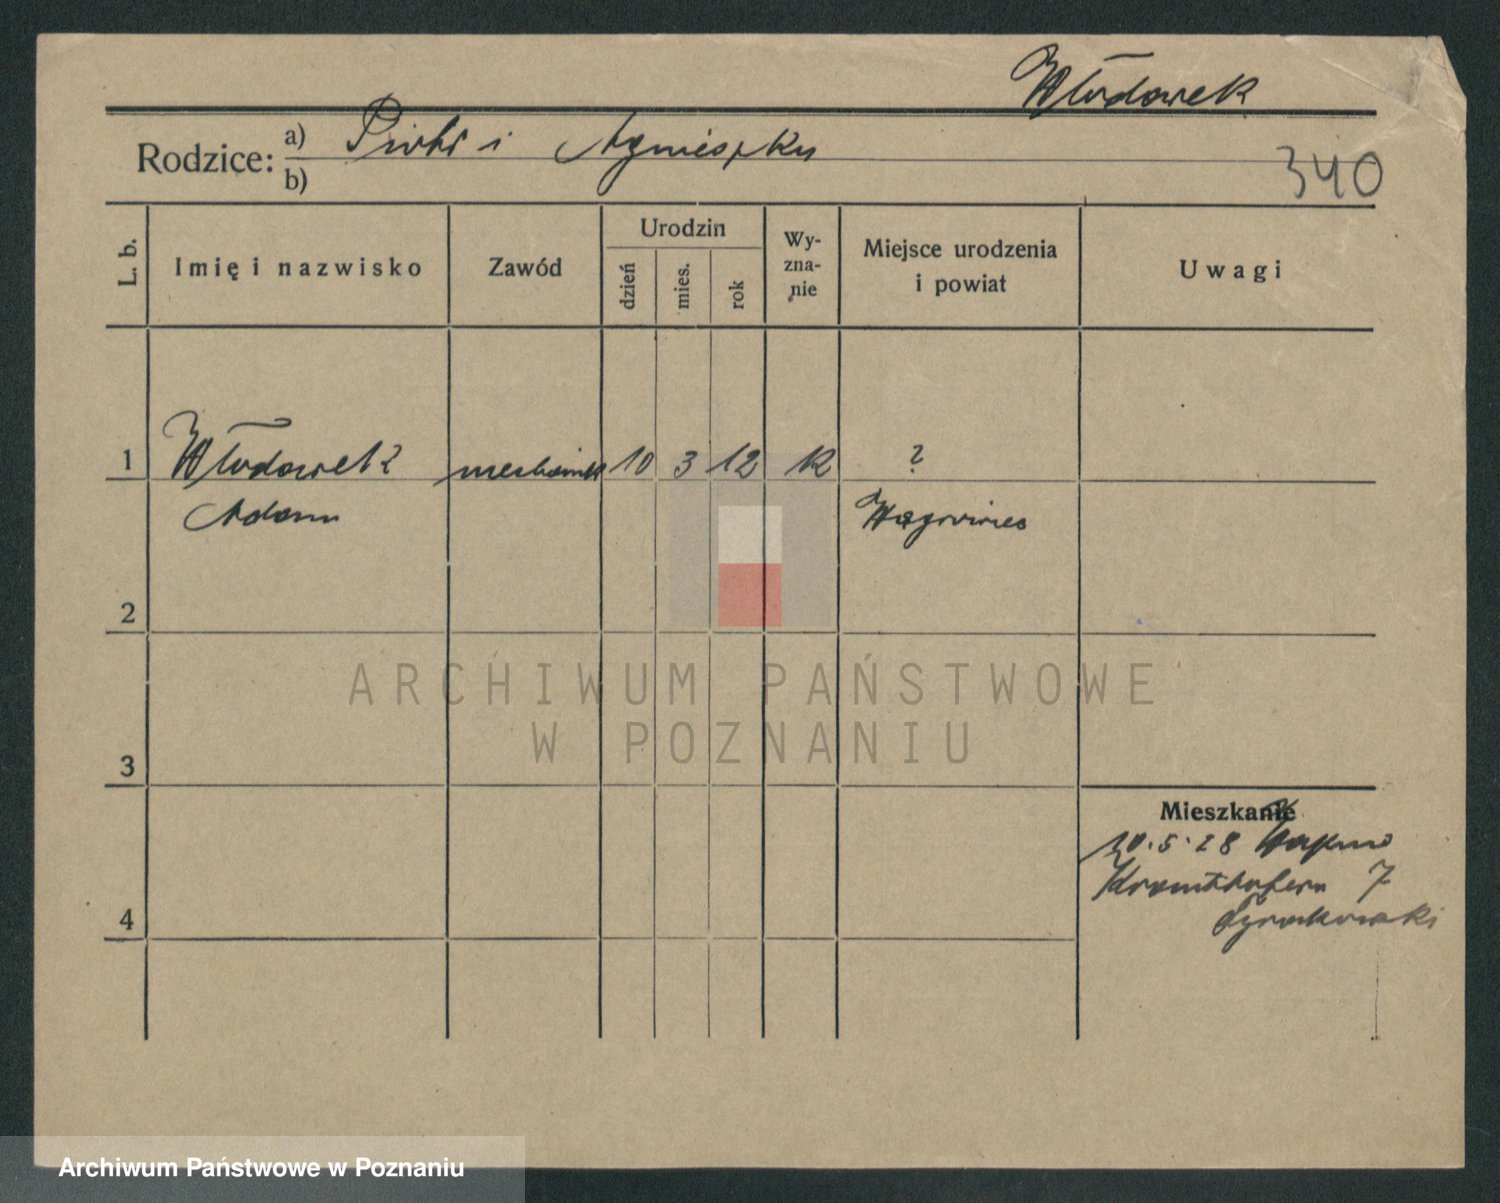 Włodarek
Rodzice: a) Piotr i Agnieszka
b)
340
L. b.
Imię i nazwisko
Zawód
Urodzin
dzień
mies.
rok
Wy-
zna-
nie
Miejsce urodzenia
i powiat
Uwagi
1 Włodarek mechanik 10 3 12 k ?
Adam
2
ARCHIWUM PAŃSTWOWE
W POZNANIU
3
Mieszkanie
20.5.28
7
4
Archiwum Państwowe w Poznaniu